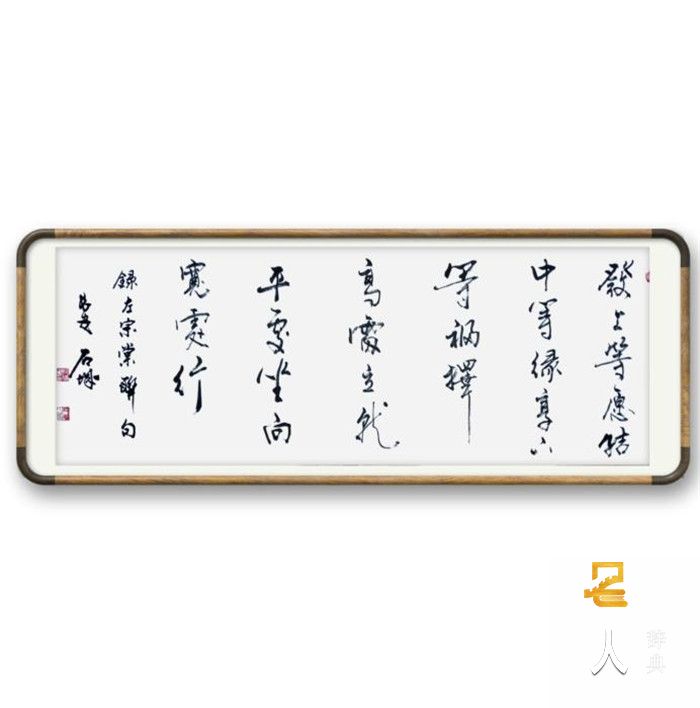 發上等愿結
中等緣享下
等福擇
高處立就
平處坐向
寬處行
錄左宗棠聯句
石城
名人
辞典